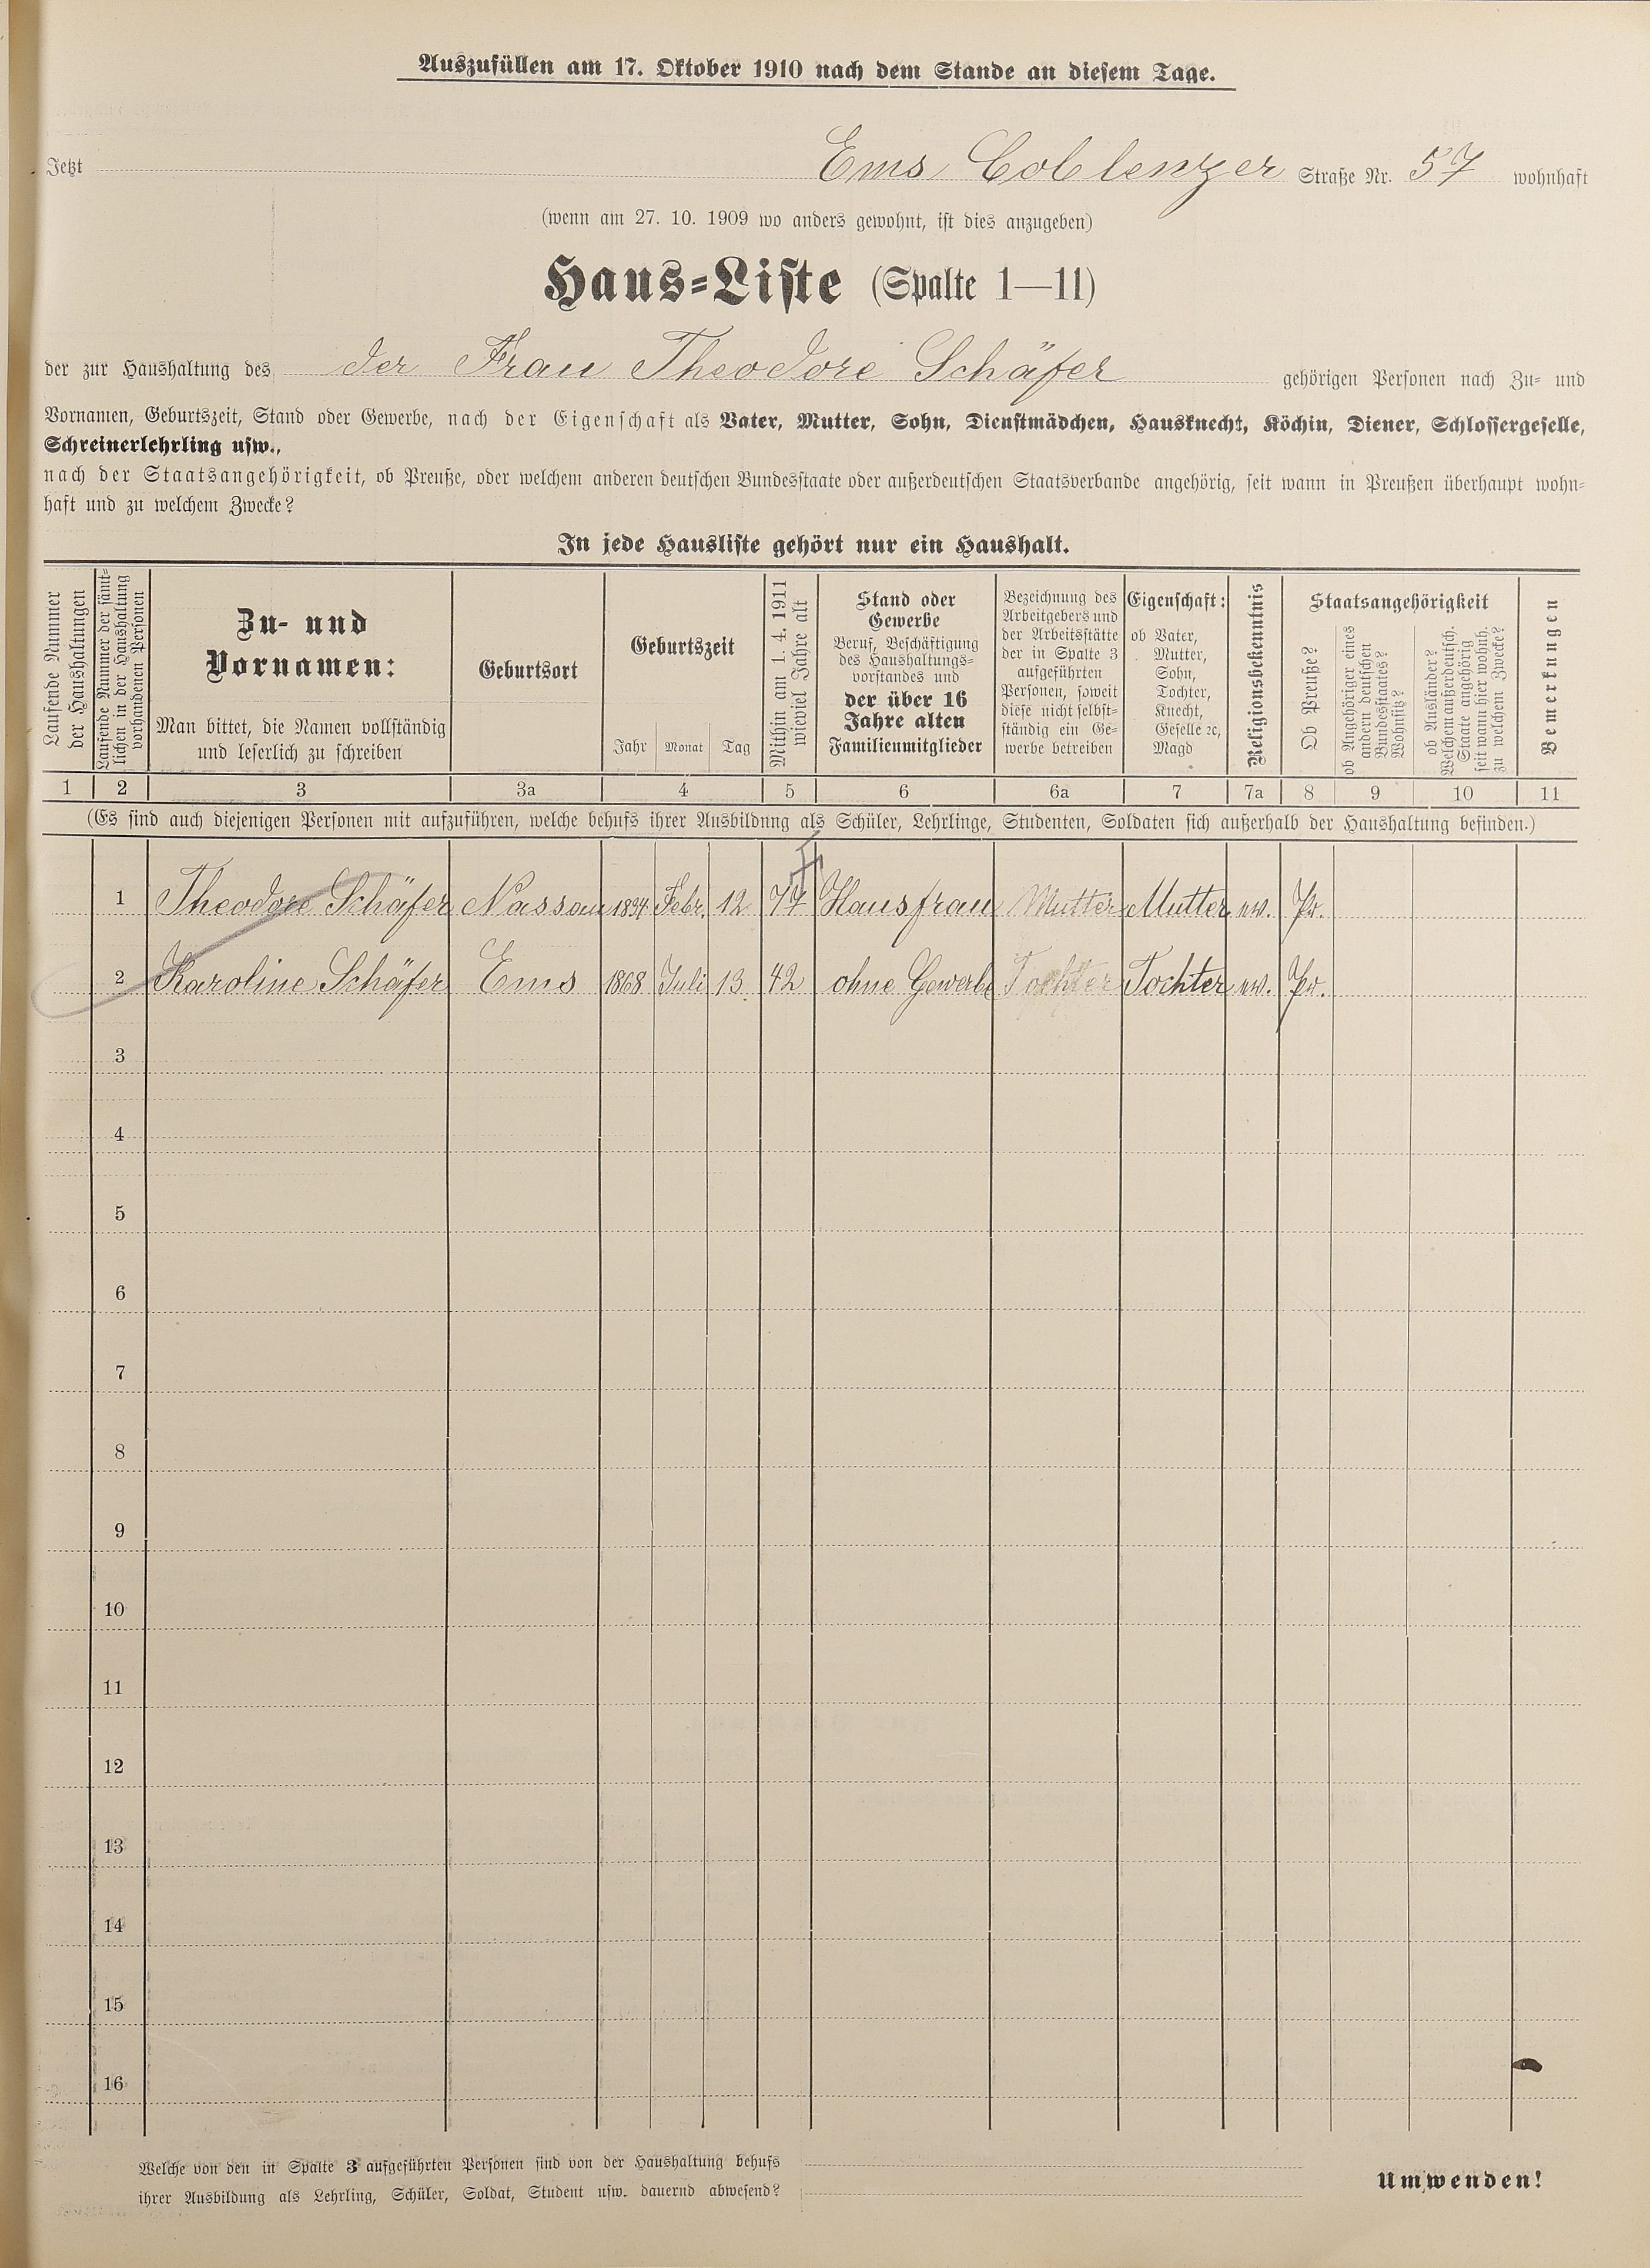 Auszufüllen am 17. Oktober 1910 nach dem Stande an diesem Tage.
Jetzt Ems Coblenzer Straße Nr. 57 wohnhaft
(wenn am 27. 10. 1909 wo anders gewohnt, ist dies anzugeben)
Haus-Liste (Spalte 1—11)
der zur Haushaltung des der Frau Theodore Schäfer gehörigen Personen nach Zu- und
Vornamen, Geburtszeit, Stand oder Gewerbe, nach der Eigenschaft als Vater, Mutter, Sohn, Dienstmädchen, Hausknecht, Köchin, Diener, Schlossergeselle,
Schreinerlehrling usw.,
nach der Staatsangehörigkeit, ob Preuße, oder welchem anderen deutschen Bundesstaate oder außerdeutschen Staatsverbande angehörig, seit wann in Preußen überhaupt wohn-
haft und zu welchem Zwecke?
In jede Hausliste gehört nur ein Haushalt.
Laufende Nummer
der Haushaltungen
Laufende Nummer der sämt-
lichen in der Haushaltung
vorhandenen Personen
Zu- und
Vornamen:
Man bittet, die Namen vollständig
und leserlich zu schreiben
Geburtsort
Geburtszeit
Jahr Monat Tag
Mithin am 1. 4. 1911
wieviel Jahre alt
Stand oder
Gewerbe
Beruf, Beschäftigung
des Haushaltungs-
vorstandes und
der über 16
Jahre alten
Familienmitglieder
Bezeichnung des
Arbeitgebers und
der Arbeitsstätte
der in Spalte 3
aufgeführten
Personen, soweit
diese nicht selbst-
ständig ein Ge-
werbe betreiben
Eigenschaft:
ob Vater,
Mutter,
Sohn,
Tochter,
Knecht,
Geselle ꝛc,
Magd
Religionsbekenntnis
Staatsangehörigkeit
Ob Preuße?
ob Angehöriger eines
andern deutschen
Bundesstaates?
Wohnsitz?
ob Ausländer?
Welchem außerdeutsch.
Staate angehörig
seit wann hier wohnh.
zu welchen Zwecke?
Bemerkungen
1 2 3 3a 4 5 6 6a 7 7a 8 9 10 11
(Es sind auch diejenigen Personen mit aufzuführen, welche behufs ihrer Ausbildnng als Schüler, Lehrlinge, Studenten, Soldaten sich außerhalb der Haushaltung befinden.)
1 Theodore Schäfer Nassau 1834 Febr. 12 77 Hausfrau Mutter Mutter ew. Pr.
2 Karoline Schäfer Ems 1868 Juli 13 42 ohne Gewerbe Tochter Tochter ew. Pr.
3
4
5
6
7
8
9
10
11
12
13
14
15
16
Welche von den in Spalte 3 aufgeführten Personen sind von der Haushaltung behufs
ihrer Ausbildung als Lehrling, Schüler, Soldat, Student usw. dauernd abwesend?
Umwenden!